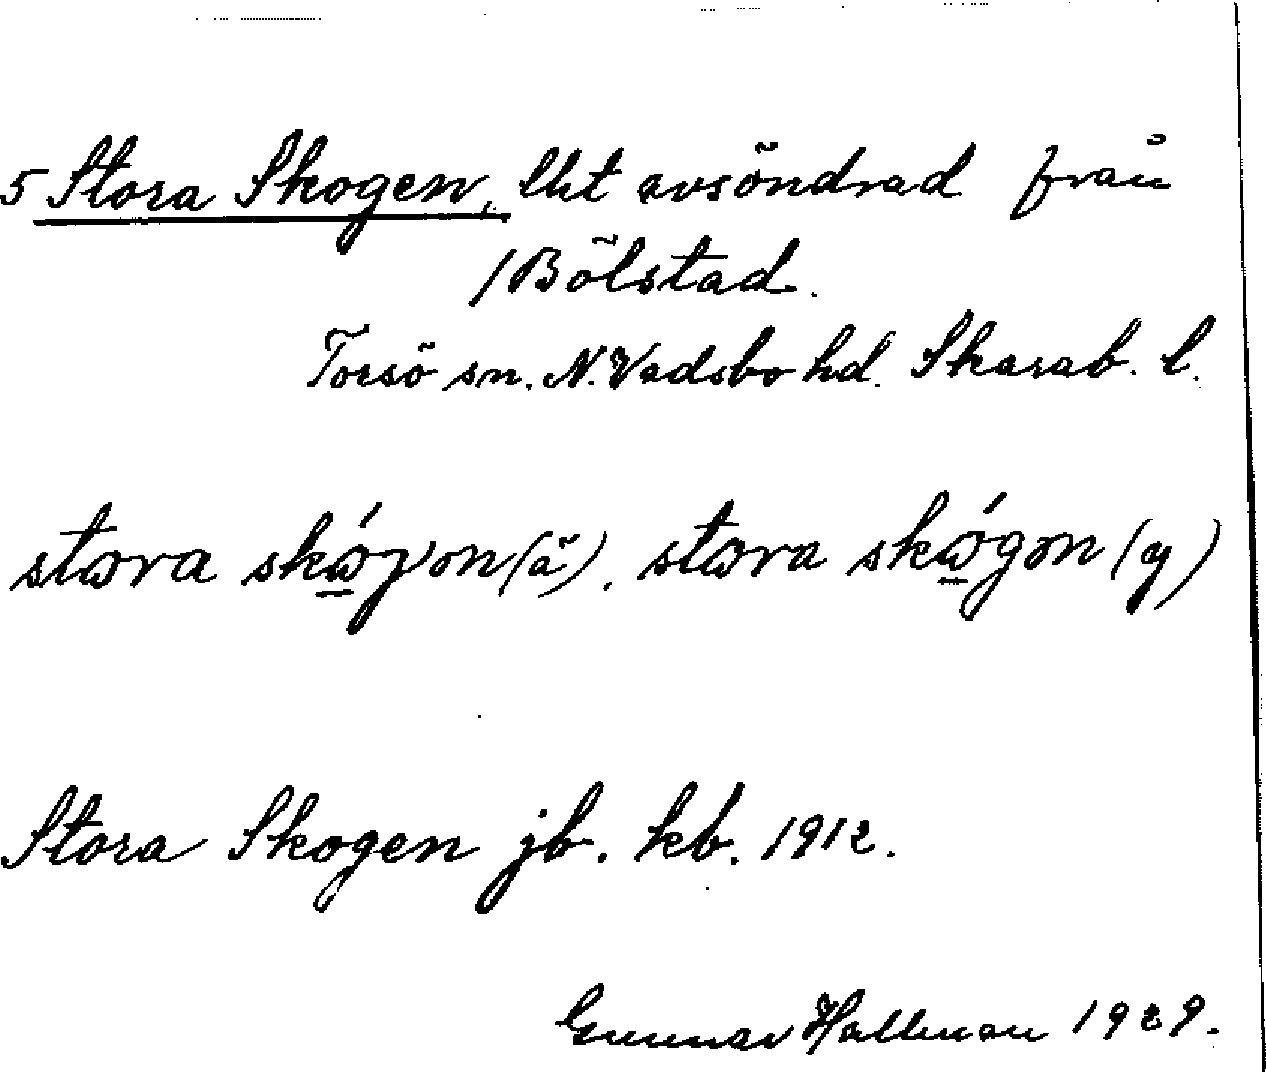 5 Stora Skogen, lht avsöndrad från
/Bölstad.
Torsö sn. N. Vadsbo hd. Skarab. l.
stωra skώ̲γon (ä). stωra skώ̲gon (y)
Stora Skogen jb. kb. 1912.
Gunnar Hallman 1929.